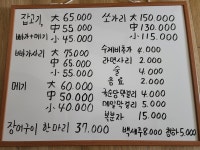 잡고기 大 65.000
中 55.000
빠가+메기 小 45.000
빠가사리 大 75.000
中 65.000
小 55.000
메기 大 60.000
中 50.000
小 40.000
장어구이 한마리 37.000
쏘가리 大 150.000
中 130.000
小 115.000
수제비추가 2.000
라면사리 2.000
술 4.000
음료 2.000
옥순담막걸리 4.000
메밀막걸리 5.000
복분자 15.000
백세주 8.000 청하 5.000